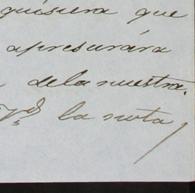 quisiera que
apresurára
de la nuestra.
la nota